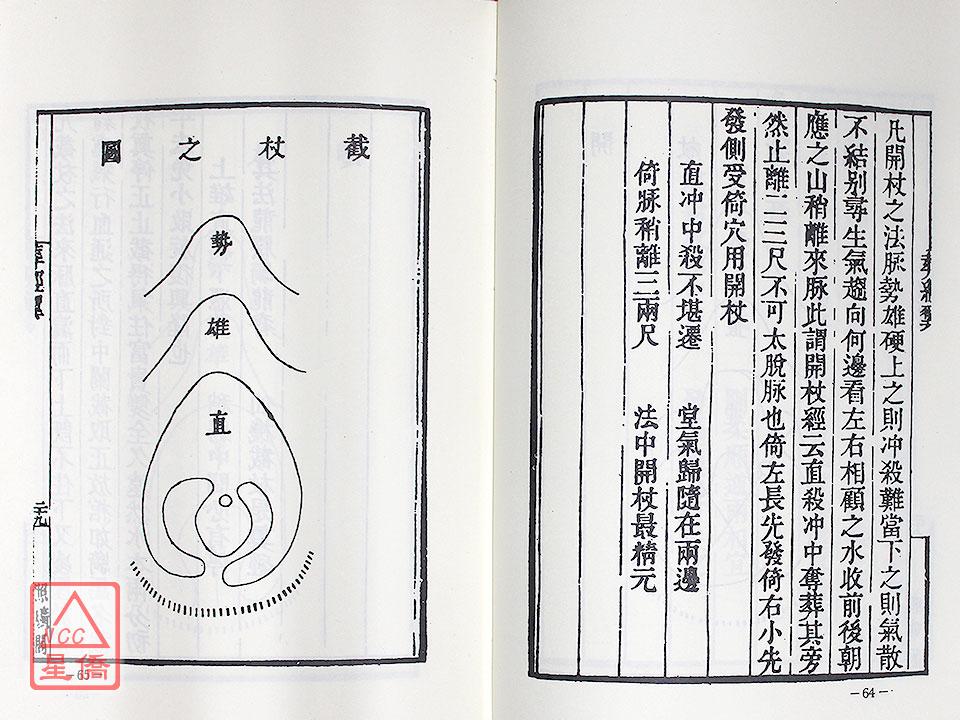 凡開杖之法脉勢雄硬上之則冲殺難當下之則氣散
不結别尋生氣趨向何邊看左右相顧之水收前後朝
應之山稍離來脉此謂開杖經云直殺冲中奪葬其旁
然止離二三尺不可太脫脉也倚左長先發倚右小先
發側受倚穴用開杖
直冲中殺不堪遷 堂氣歸隨在兩邊
倚脉稍離三兩尺 法中開杖最精元
-64-
截杖之圖
勢
雄
直
元
照曠閣
-65-
ICC
星僑